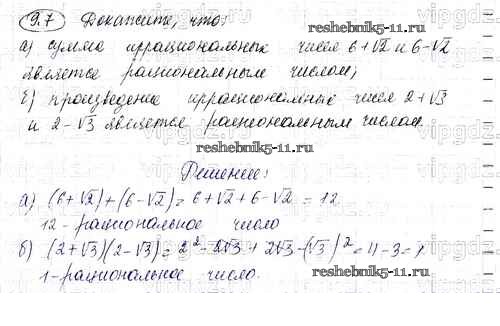 9.7 Докажите, что:
reshebnik5-11.ru
а) сумма иррациональных чисел 6+√2 и 6-√2
является рациональным числом;
б) произведение иррациональных чисел 2+√3
и 2-√3 является рациональным числом.
reshebnik5-11.ru
Решение:
а) (6+√2)+(6-√2)=6+√2+6-√2=12
12-рациональное число
б) (2+√3)(2-√3)=2²-2√3+2√3-(√3)²=4-3=1
1-рациональное число.
reshebnik5-11.ru